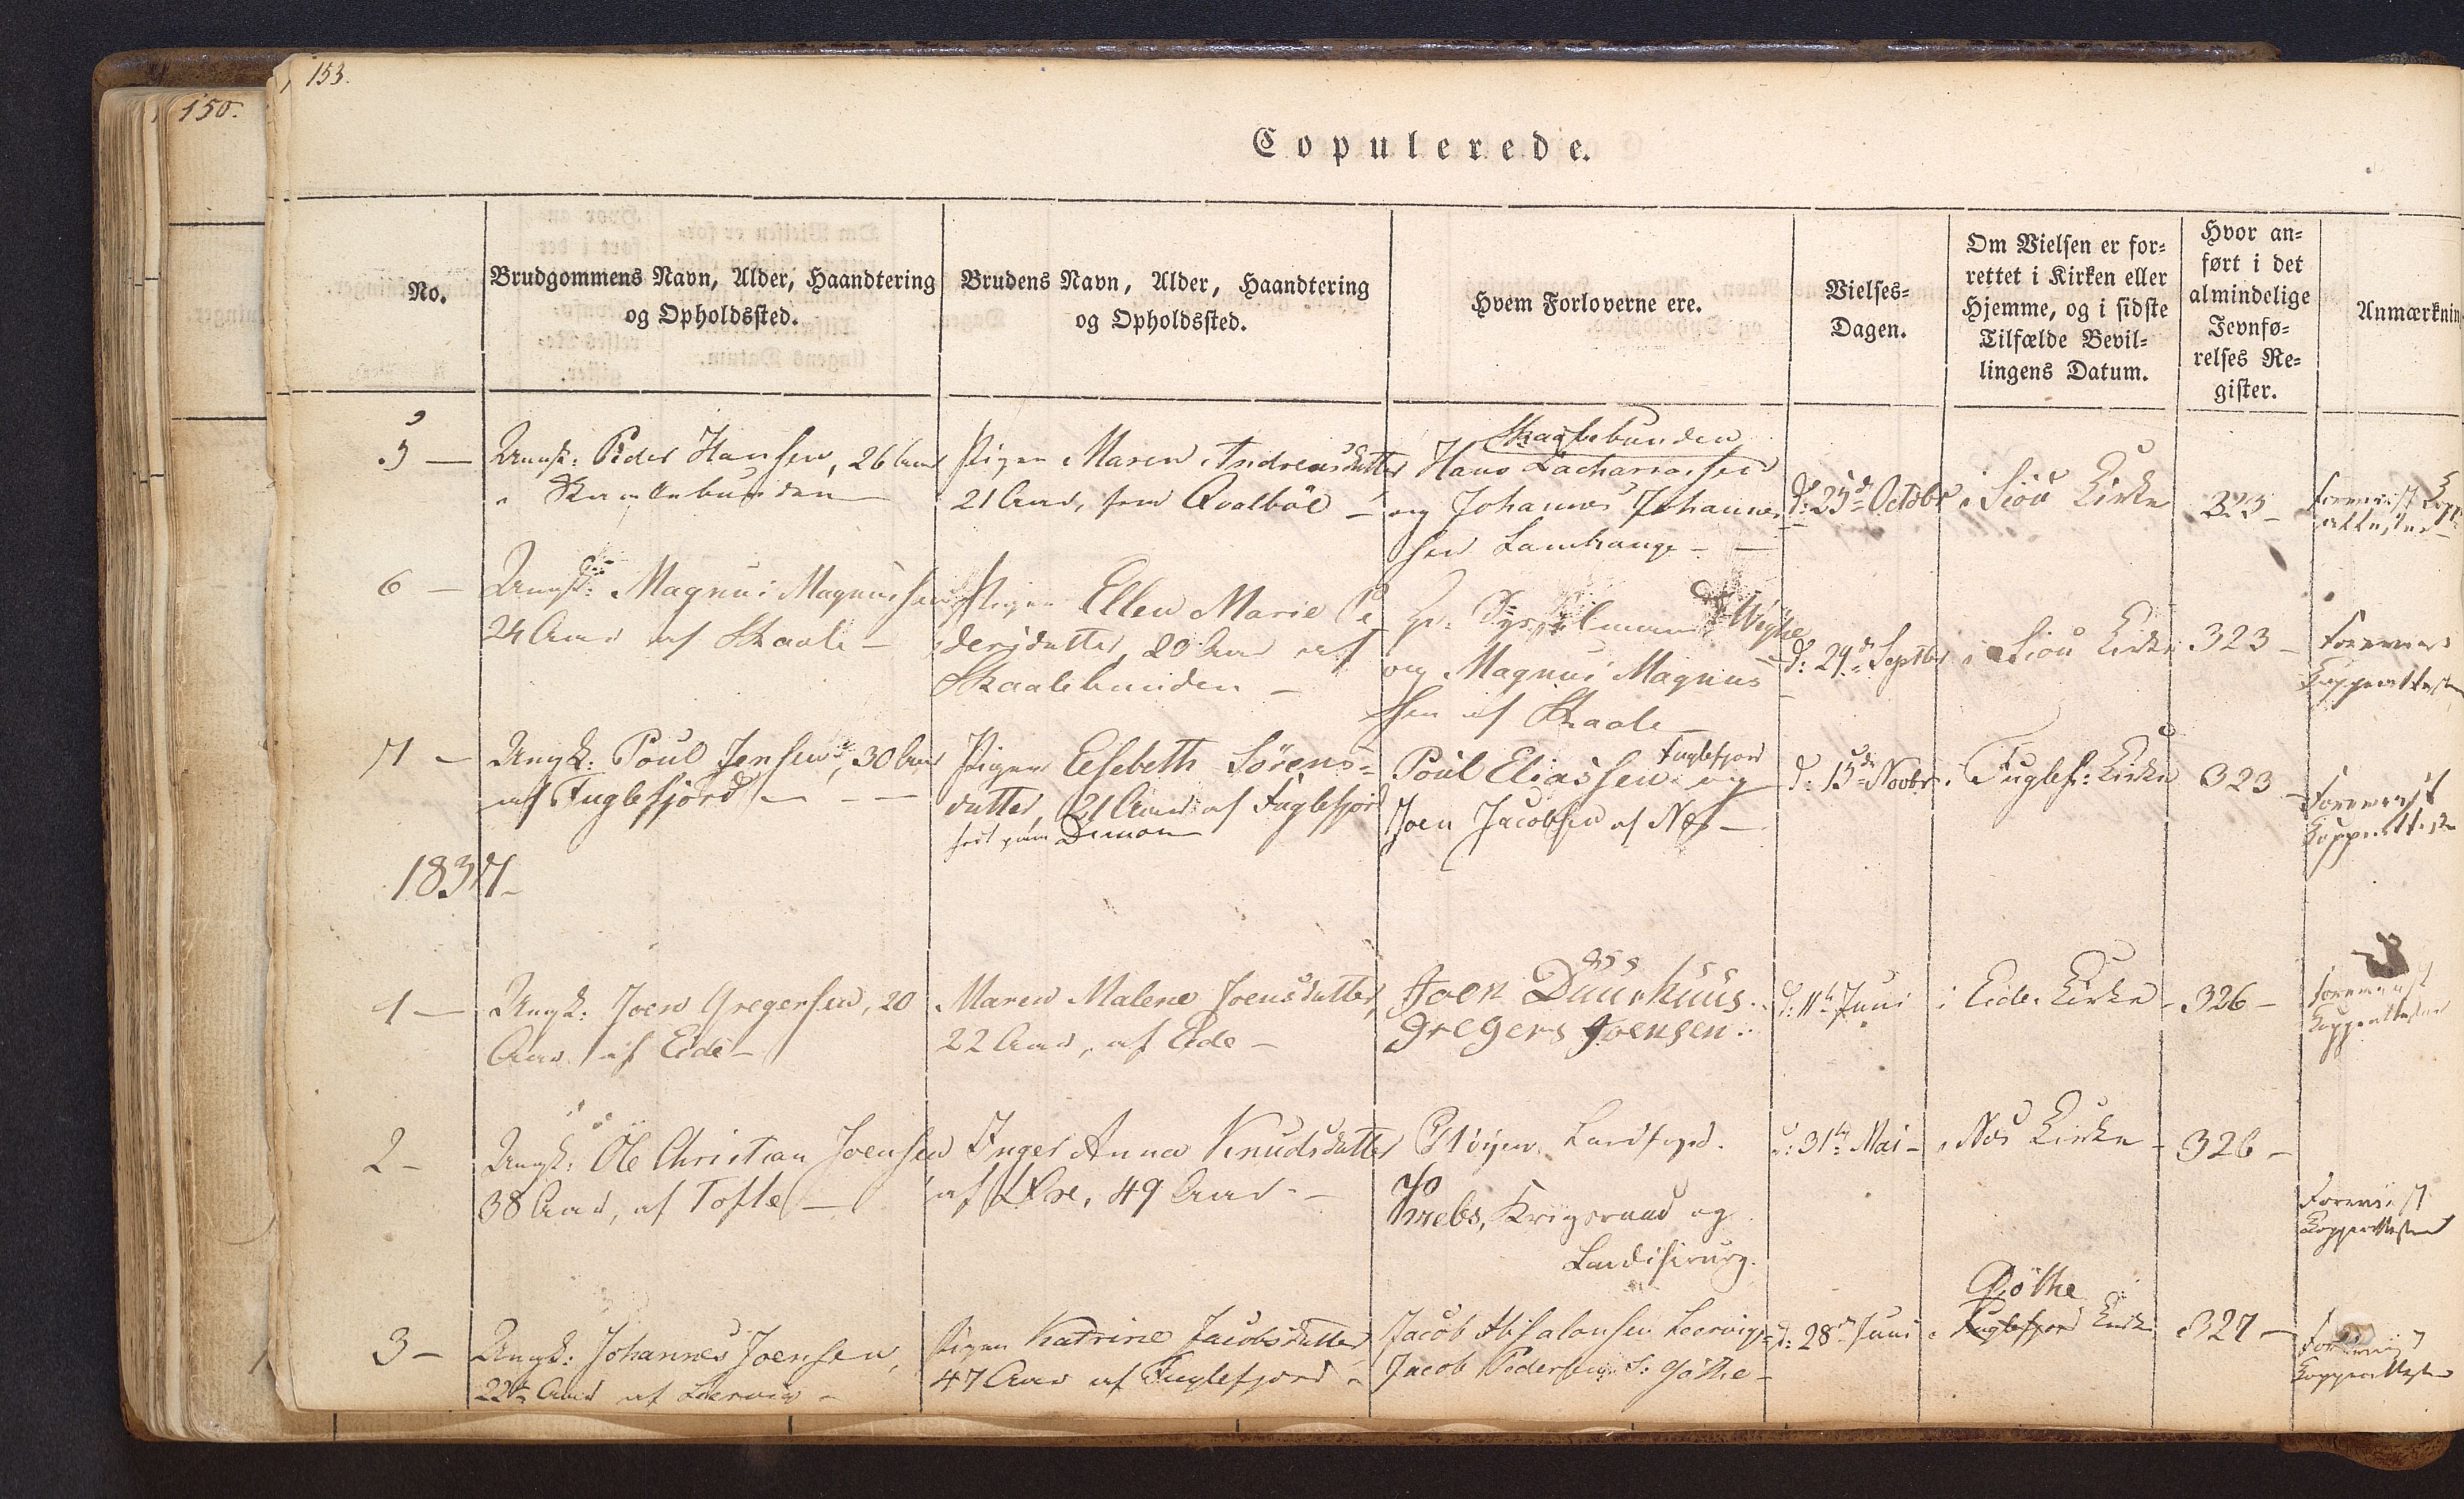 153.
150.
Copulerede.
No.
Brudgommens Navn, Alder, Haandtering
og Opholdssted.
Brudens Navn, Alder, Haandtering
og Opholdssted.
Hvem Forloverne ere.
Vielses-
Dagen.
Om Vielsen er for-
rettet i Kirken eller
Hjemme, og i sidste
Tilfælde Bevil-
lingens Datum.
Hvor an-
ført i det
almindelige
Jevnfø-
relses Re-
gister.
Anmærknin
5 —
Ungk: Peder Hansen, 26 Aar
Pigen Maren Andreasdatter
21 Aar, fra Qvalbøe —
Hans Zachariasen
og Johannes Johannes
sen Lamhauge — —
d: 25de Octobr
i Siov Kirke
323 —
6 —
Ungk: Magnus Magnussen
24 Aar af Skaale —
Pigen Ellen Marie Pe
dersdatter, 20 Aar af
Skaalebunden —
Hr. Sysselmand Weyhe
og Magnus Magnus
sen af Skaale —
d: 29de Septbr
i Siov Kirke
323 —
7 —
Ungk: Poul Jensen, 30 Aar
af Fuglefjord — — —
Pigen Elsebeth Sörens-
datter, 21 Aar af Fuglefjord
Poul Eliassen Fuglefjord og
Joen Jacobsen af Næs —
d: 15de Novbr.
i Fuglef: Kirke
323 —
Foreviist
Koppeattester
1837 —
1 —
Ungk: Joen Gregersen, 20
Aar af Eide —
Maren Malene Joensdatter,
22 Aar, af Eide —
Joen Duurhuus.
Gregers Joensen.
d: 11te Juni
i Eide Kirke
326 —
Foreviist
Koppeattester
2 —
Ungk: Ole Christian Joensen
38 Aar, af Tofte —
Inger Anna Knudsdatter
af Øre, 49 Aar. —
Landfoged.
Krebs, Krigsraad og
Landchirurg.
d: 31te Mai —
i Næs Kirke —
326 —
Foreviist
Koppeattester
3 —
Ungk: Johannes Joensen,
22½ Aar af Leervig —
Pigen Katrine Jacobsdatter
47 Aar af Fuglefjord —
Jacob Absalonsen Leervig
Jacob Pedersen S: Göthe —
d: 28de Juni
i Göthe
Fuglefjord Kirke
327 —
Foreviist
Koppeattester